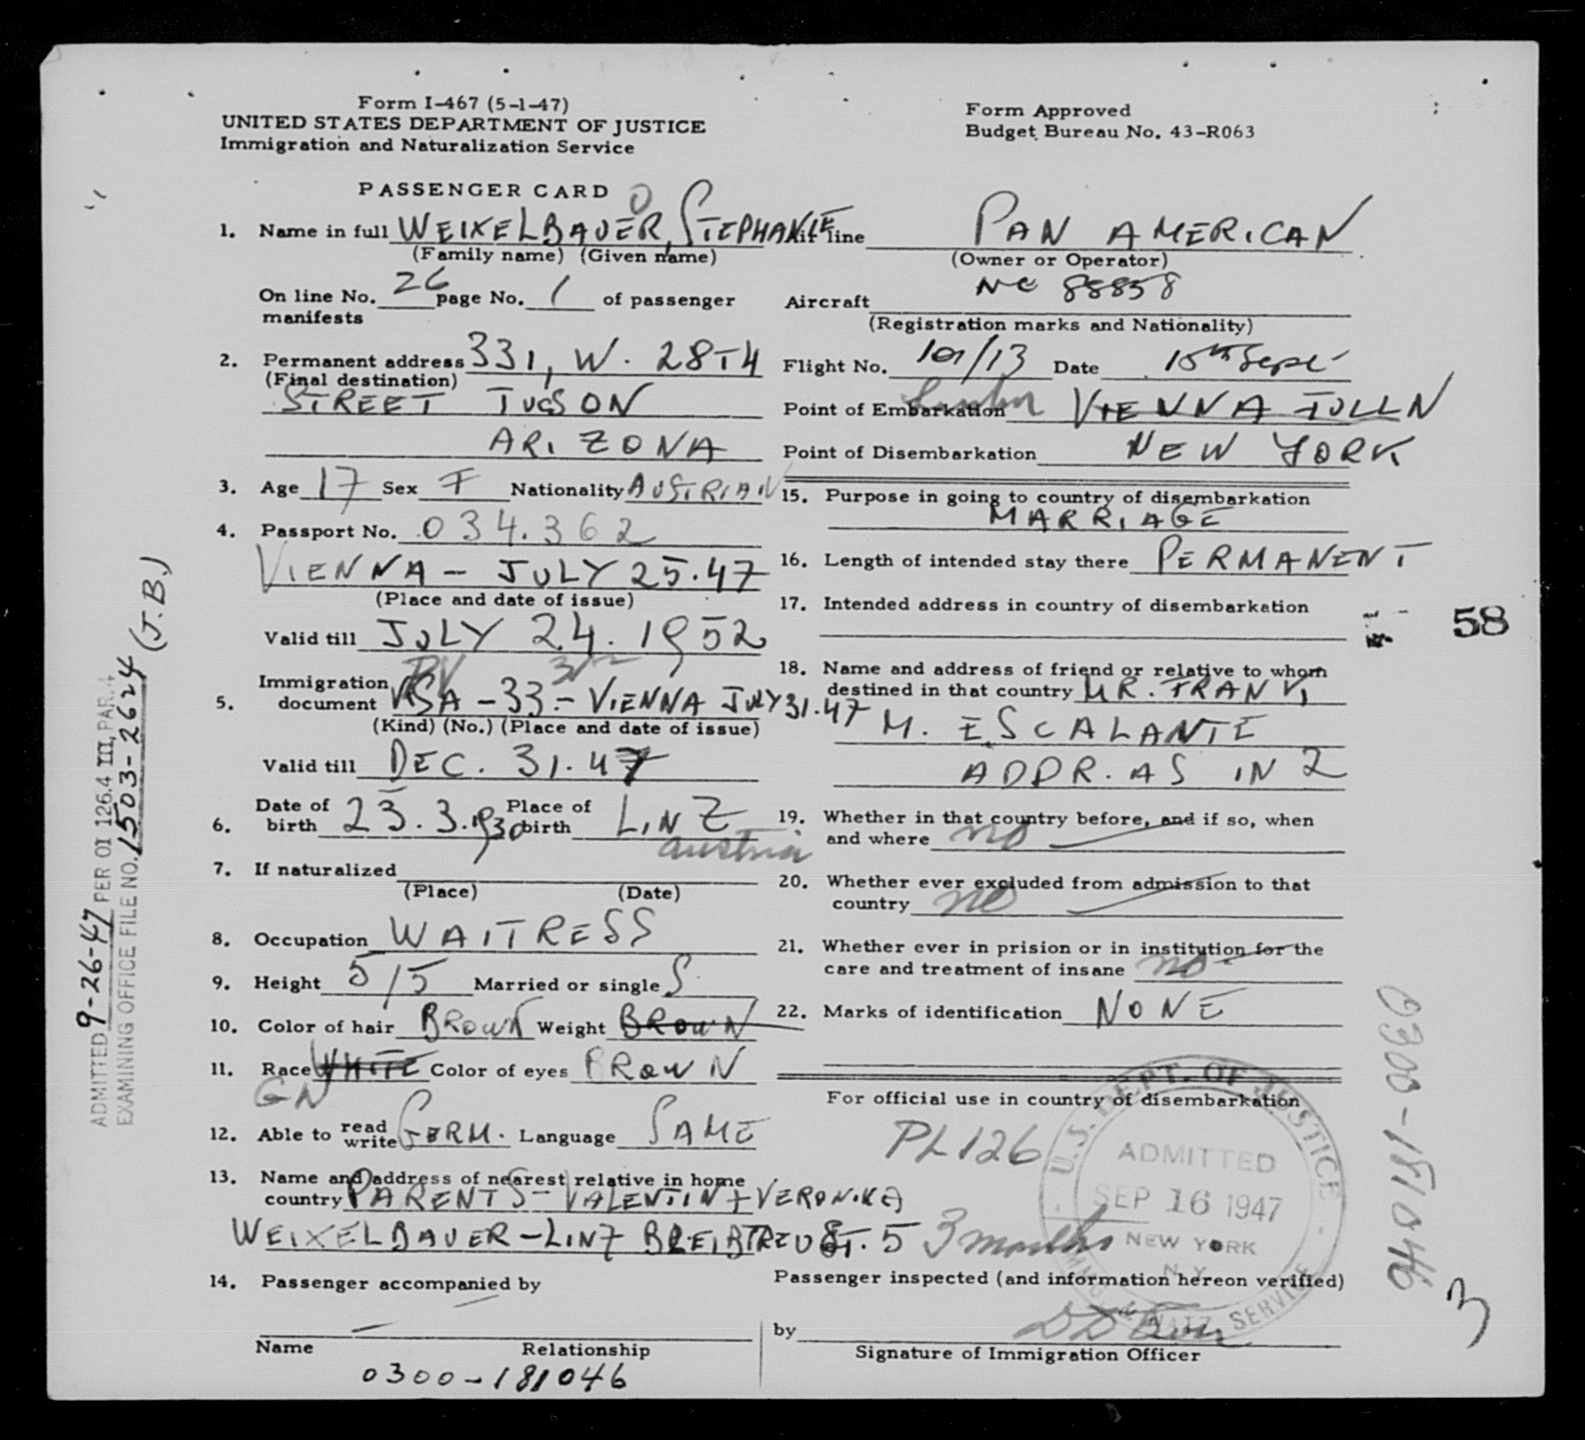 Form I-467 (5-1-47)
UNITED STATES DEPARTMENT OF JUSTICE
Immigration and Naturalization Service
Form Approved
Budget Bureau No. 43-R063
PASSENGER CARD
1. Name in full WEIXELBAUER, STEPHANIE
(Family name) (Given name)
Air line PAN AMERICAN
(Owner or Operator)
On line No. 26 page No. 1 of passenger
manifests
Aircraft NC 88858
(Registration marks and Nationality)
2. Permanent address 331, W. 28TH
(Final destination)
STREET TUCSON
ARIZONA
Flight No. 101/13 Date 15th Sept
Point of Embarkation London VIENNA TULLN
Point of Disembarkation NEW YORK
3. Age 17 Sex F Nationality AUSTRIAN
4. Passport No. 034.362
VIENNA - JULY 25.47
(Place and date of issue)
Valid till JULY 24. 1952
PV 3/2
5. Immigration
document VISA - 33 - VIENNA JULY 31.47
(Kind) (No.) (Place and date of issue)
Valid till DEC. 31.47
6. Date of birth 23.3.1930 Place of birth LINZ
austria
7. If naturalized
(Place) (Date)
8. Occupation WAITRESS
9. Height 5/5 Married or single S
10. Color of hair BROWN Weight BROWN
11. Race WHITE Color of eyes BROWN
GN
12. Able to read write GERM. Language SAME
13. Name and address of nearest relative in home
country PARENTS - VALENTIN + VERONIKA
WEIXELBAUER - LINZ ST. 5
14. Passenger accompanied by
Name Relationship
0300-181046
15. Purpose in going to country of disembarkation
MARRIAGE
16. Length of intended stay there PERMANENT
17. Intended address in country of disembarkation
18. Name and address of friend or relative to whom
destined in that country MR. FRANK
M. ESCALANTE
ADDR. AS IN 2
19. Whether in that country before, and if so, when
and where no
20. Whether ever excluded from admission to that
country no
21. Whether ever in prision or in institution for the
care and treatment of insane no
22. Marks of identification NONE
For official use in country of disembarkation
PL 126
3 months
U.S. DEPT. OF JUSTICE
ADMITTED
SEP 16 1947
NEW YORK
N.Y.
IMMIG. & NATZ. SERVICE
Passenger inspected (and information hereon verified)
by
Signature of Immigration Officer
58
0300-181046
3
ADMITTED 9-26-47 PER OI 126.4 III, PAR. 4
EXAMINING OFFICE FILE NO. 1503-2624 (J.B.)